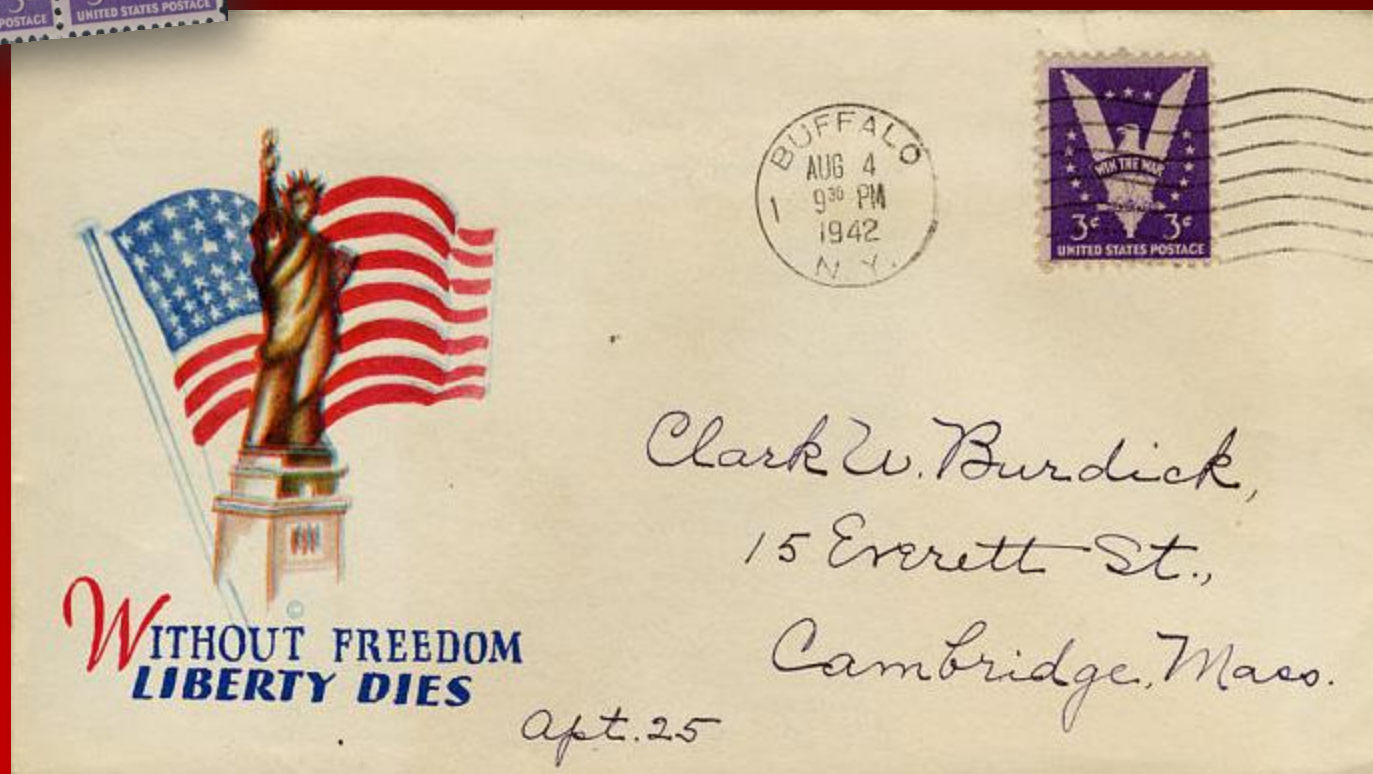 3
POSTAGE
UNITED STATES POSTAGE
BUFFALO
AUG 4
9 30 PM
1942
1
N.Y.
WIN THE WAR
3¢ 3¢
UNITED STATES POSTAGE
Clark W. Burdick,
15 Everett St.,
Cambridge, Mass.
©
WITHOUT FREEDOM
LIBERTY DIES
Apt. 25